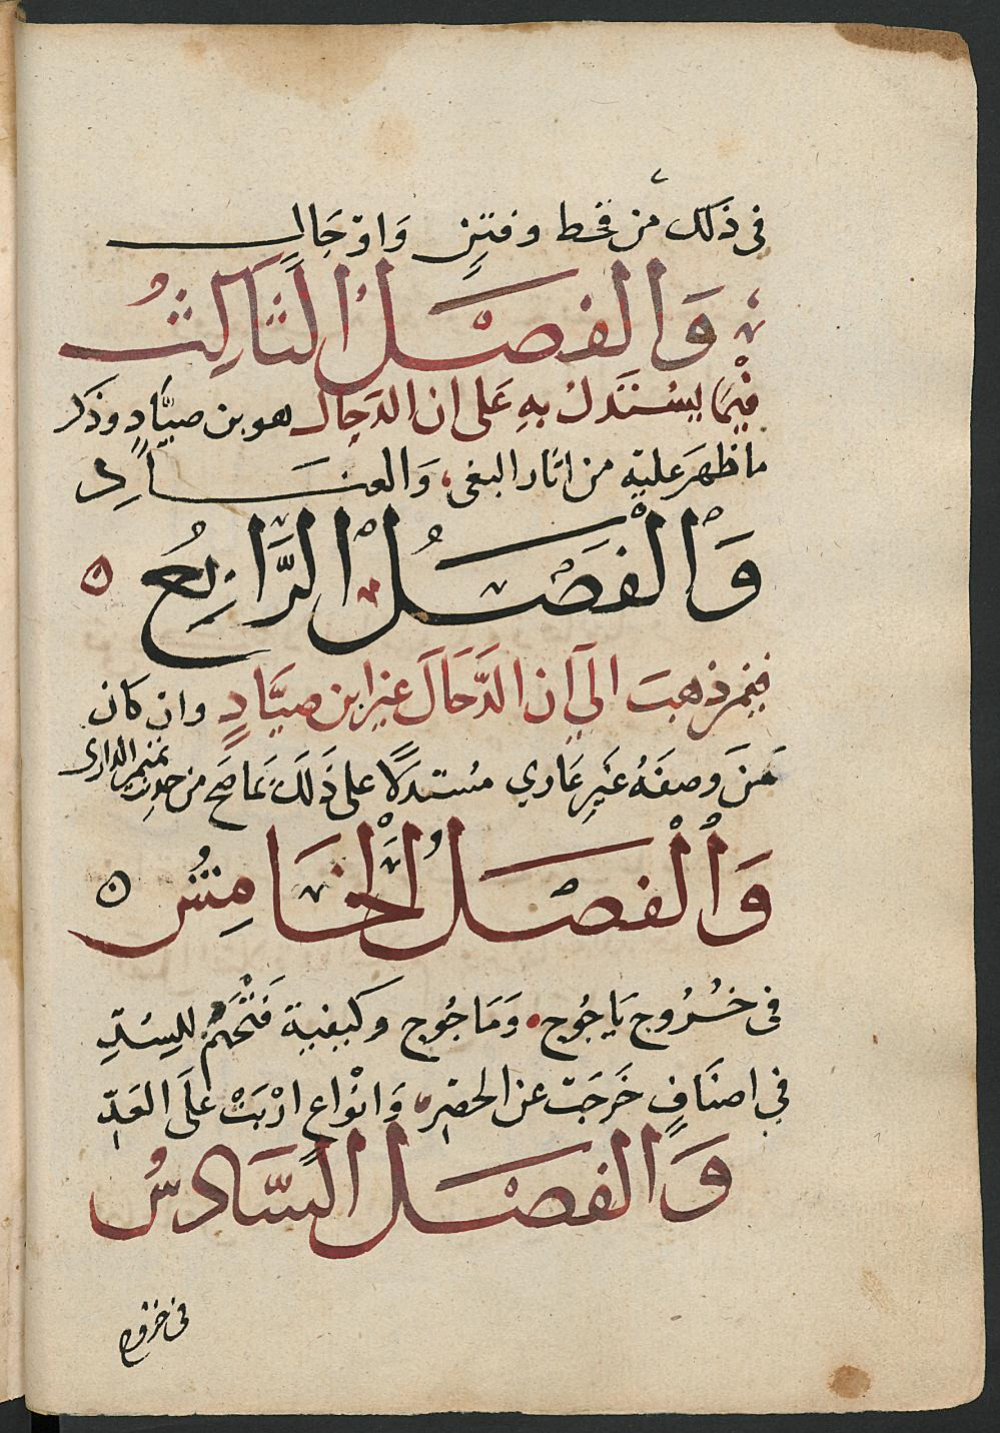 في ذلك من قحط وفتنٍ وَاوْجَالٍ
وَالفصْل الثالث
فيْمَا يسْتَدل بهِ عَلى ان الدَجال هو بن صيَّادٍ وذكر
ما ظهرَ عليْهِ من اثار البغى وَالعنَادِ
وَالْفَصْلُ الْرَّابِعُ
فيمَن ذهبَ الىَ ان الدَّجَالَ غير ابن صيَّادٍ وان كان
مَنَ وصفَهُ غَيرِ عَاري مسُتدلاً على ذَلكَ بمَا صَح من حديث تميم الدارى
وَالْفصْل الْخَامِسُ
في خُرُوج يَاجُوج وَمَاجُوج وكيفية فَتْحَهُمُ للسَّدِّ
في اصنَافٍ خَرَجَت عن الحصْر وَانْوَاعٍ ارْبَتْ عَلَى العَدِّ
وَالفصْل السَّادسُ
في خروج